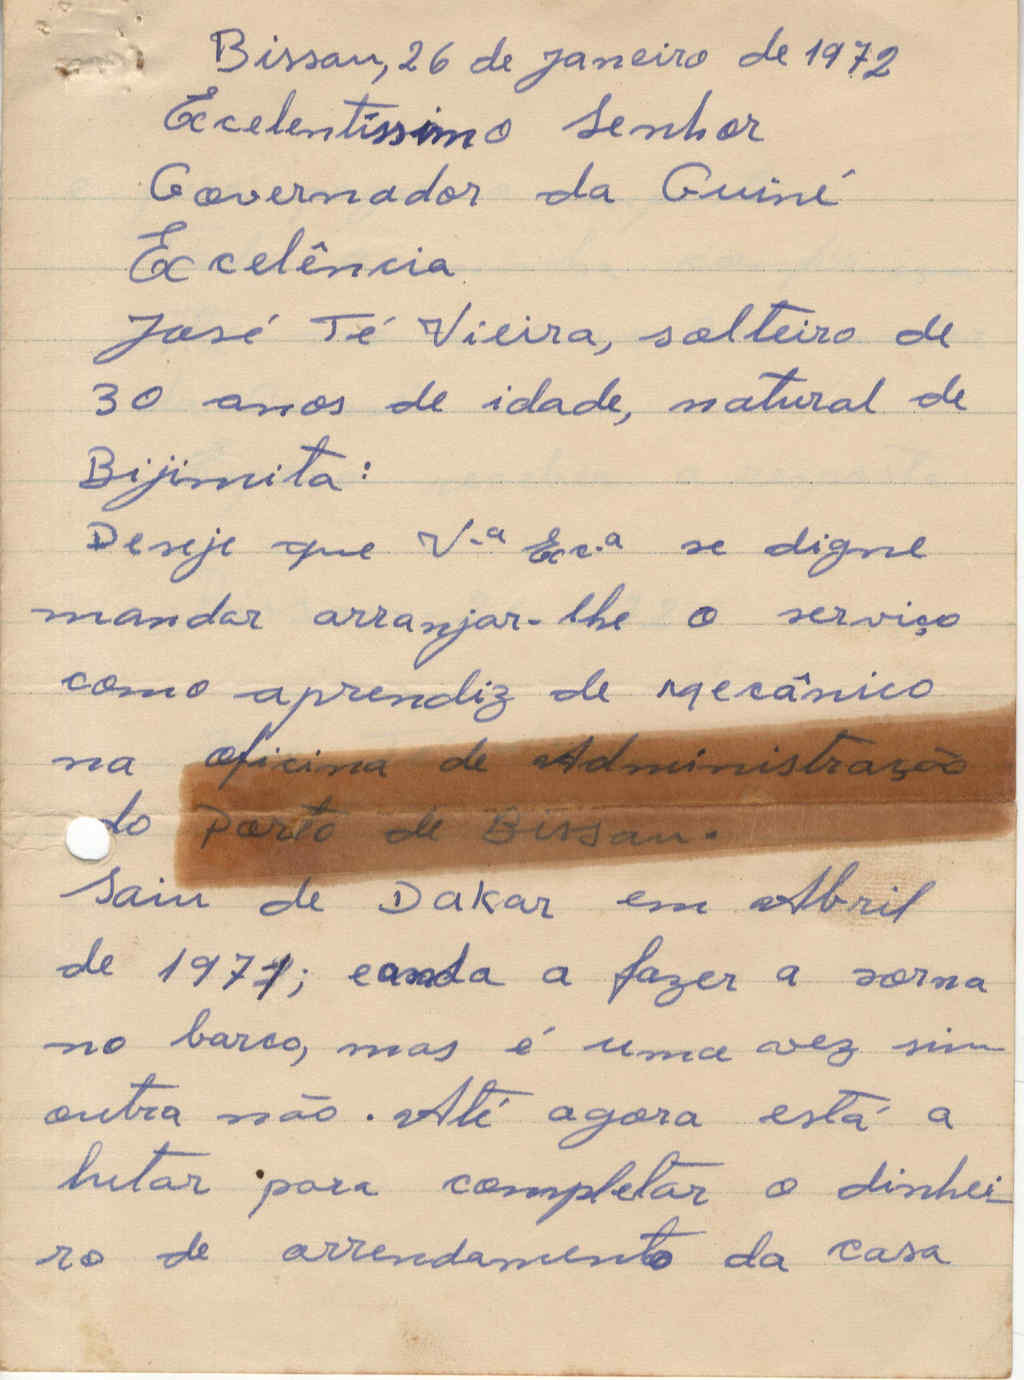 Bissau, 26 de Janeiro de 1972
Excelentíssimo Senhor
Governador da Guiné
Excelência
José Té Vieira, solteiro de
30 anos de idade, natural de
Bijimita:
Deseje que V.ª Exc.ª se digne
mandar arranjar-lhe o serviço
como aprendiz de mecânico
na oficina de Administração
do Porto de Bissau.
Saiu de Dakar em Abril
de 1971; e anda a fazer a sorna
no barco, mas é uma vez sim
outra não. Até agora está a
lutar para completar o dinhei-
ro de arrendamento da casa